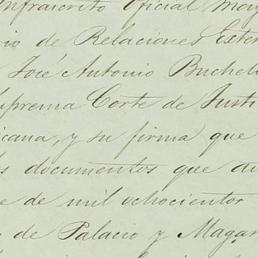 Infrascrito Oficial May
io de Relaciones Exter
José Antonio Bucheli
Suprema Corte de Justi
icana, y su firma que
los documentos que an
e de mil ochocientos
de Palacio y Magan